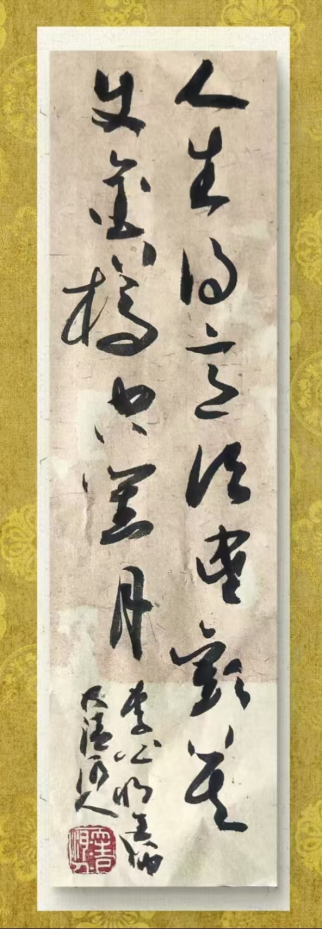 人生得意須盡歡莫
使金樽空對月
李白將進酒
大清河人